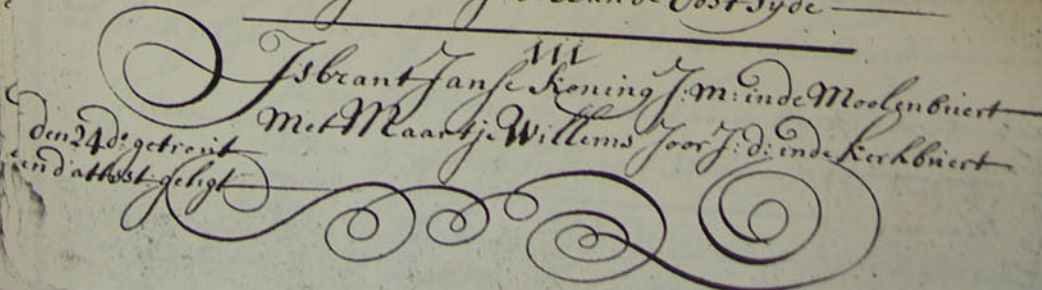 Oost Syde
III
Isbrant Janse Koning J: m: inde Moolenbuert
Met Maartje Willems Joor J: d: inde Kerkbuert
den 24 do getrout
end attest geligt